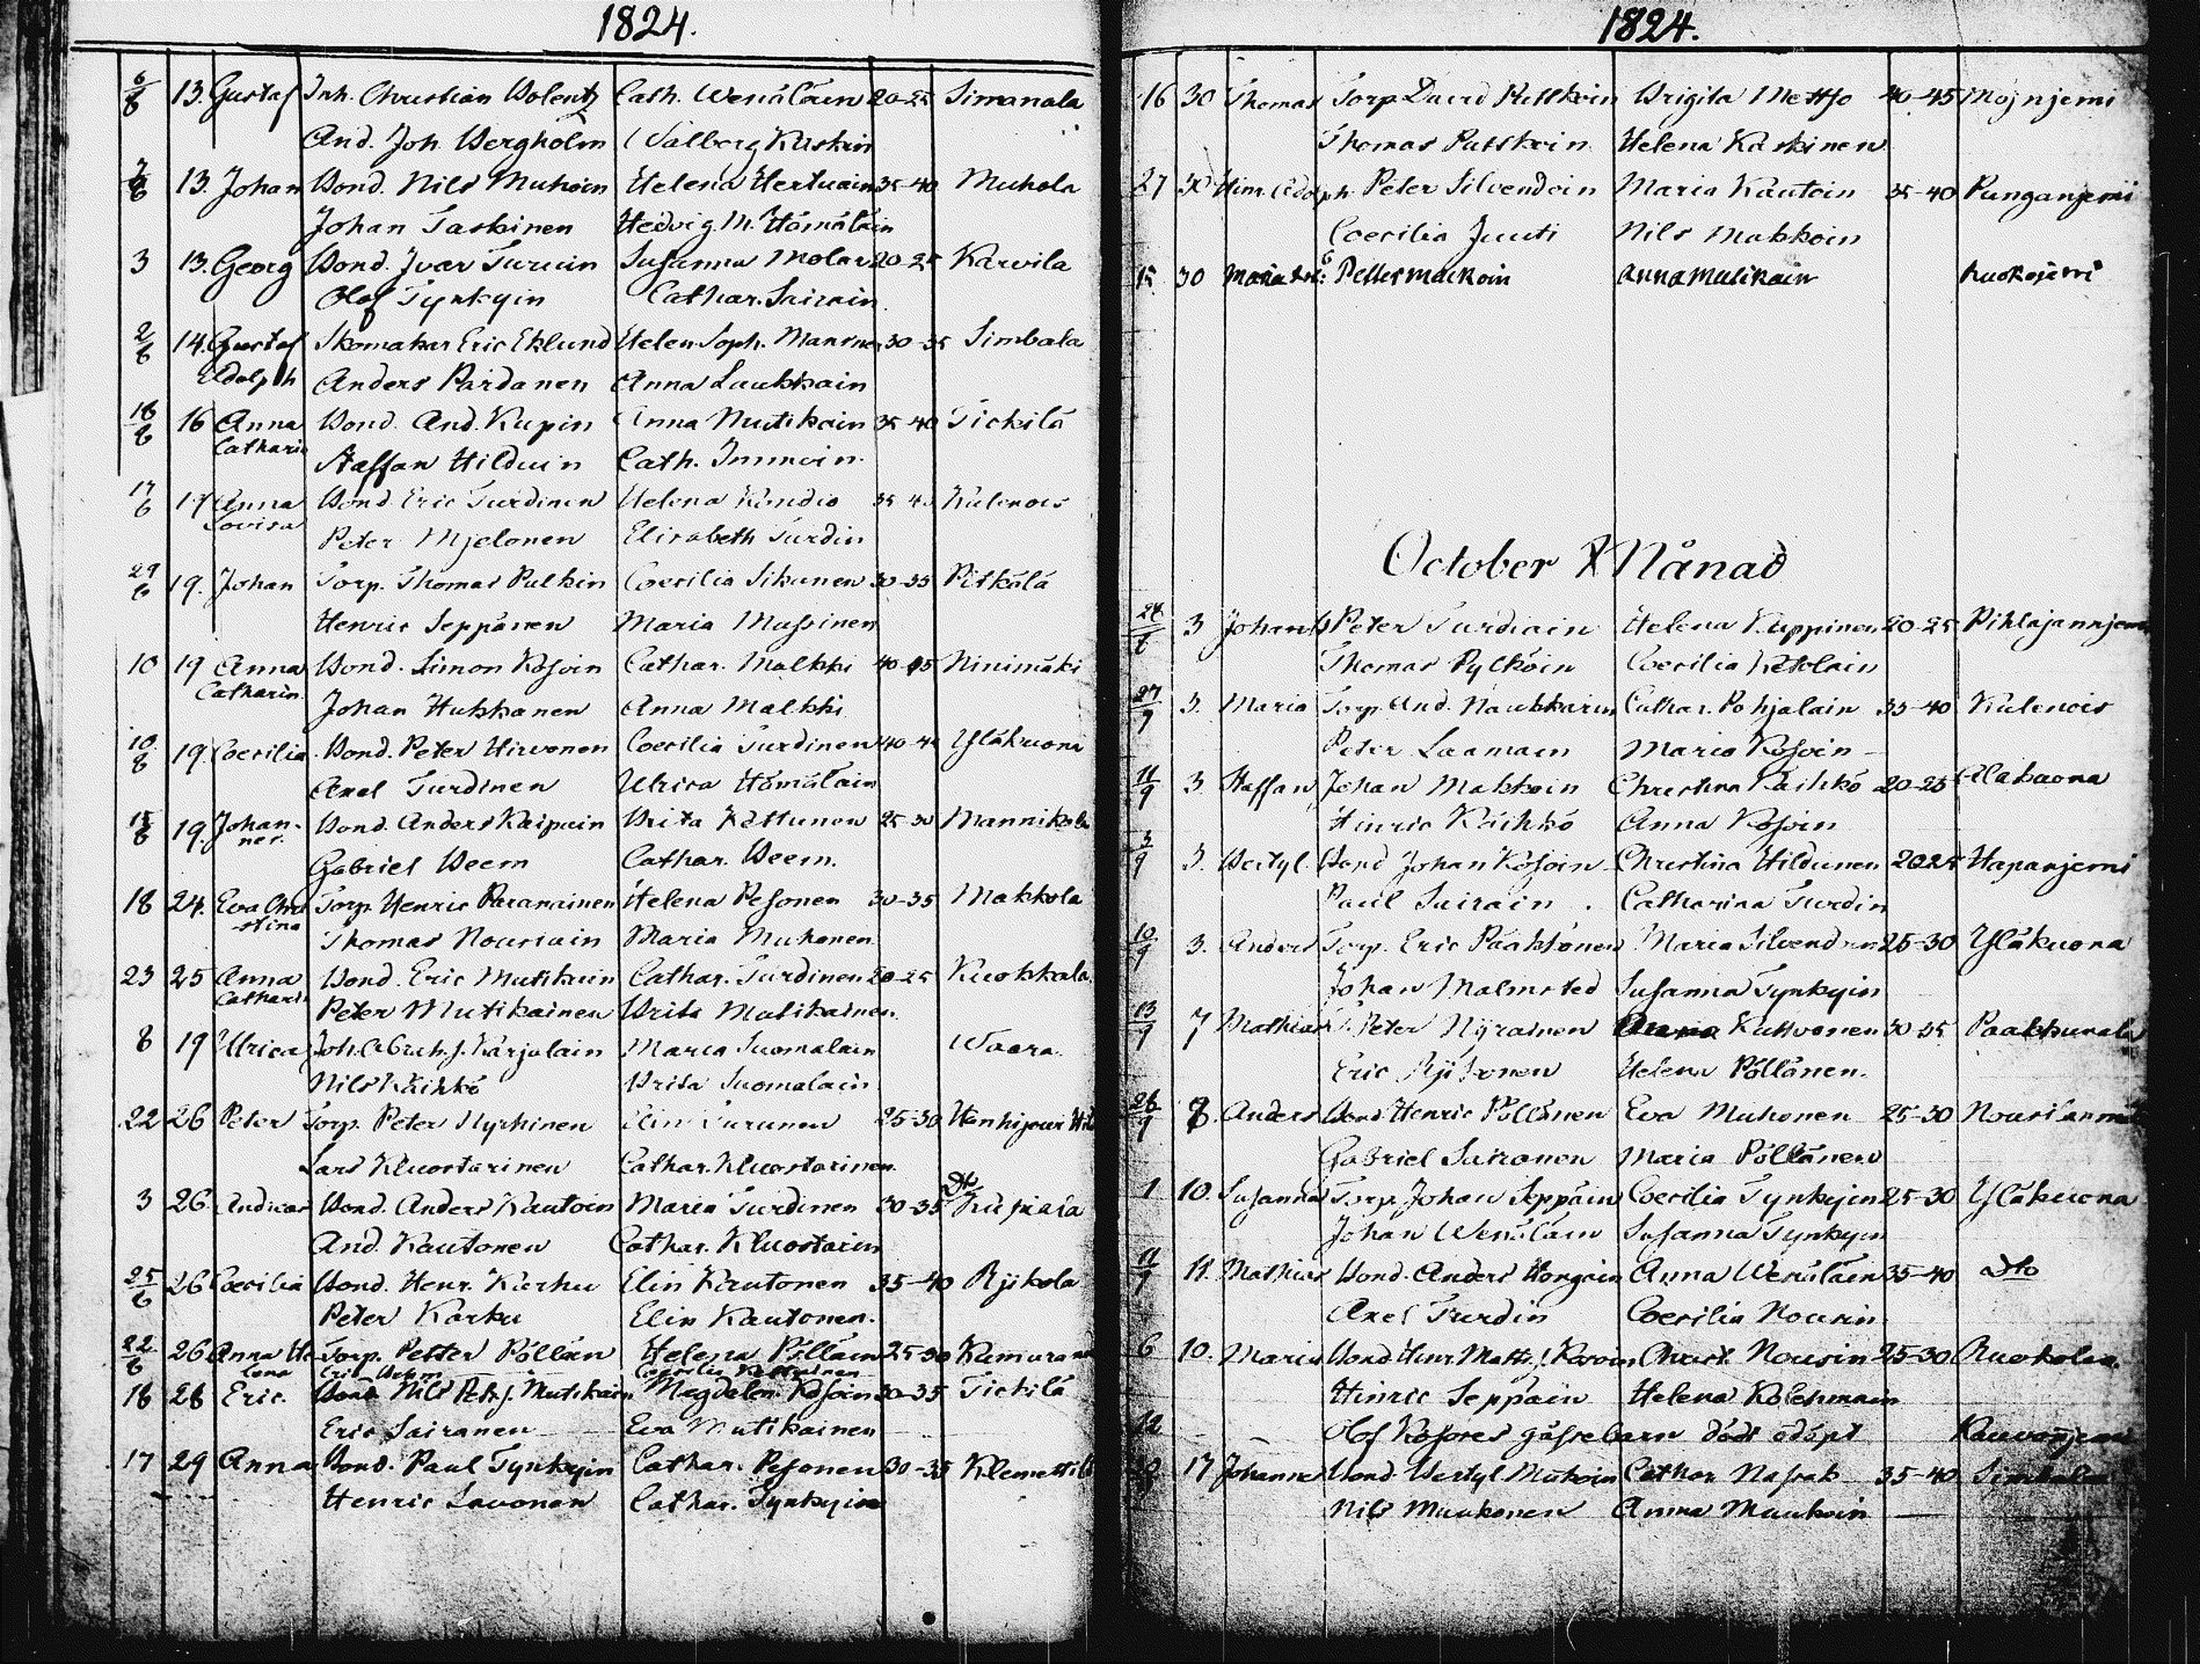 1824.
6/8 13. Gustaf Inh. Christian Wolentz Cath. Wenäläin 20-25 Simanala
And. Joh. Bergholm Walborg Kaskin
13. Johan Bond. Nils Muhoin Helena Hertuain 35-40 Muhola
Johan Taskinen Hedvig M. Hämäläin
3 13. Georg Bond. Ivar Turuin Susanna Molar 20-25 Karvila
Olof Tynkyin Cathar. Sairain
2/6 14. Gustaf Skomakar Eric Eklund Helen. Soph. 30-35 Simbala
Adolph Anders Pardanen Anna Laukkain
18/6 16 Anna Bond. And. Kupin Anna Mutikain 35-40 Tickilä
Catharin Staffan Hilduin Cath. Immoin.
17/6 17 Anna Bond. Eric Turdinen Helena Kondio 35-40 Kulenois
Lovisa Peter Mjelonen Elisabeth Turdin
29/6 19. Johan Torp. Thomas Pulkin Coecilia Sikanen 30-35 Pitkälä
Henric Seppänen Maria Massinen
10 19 Anna Bond. Simon Kosoin Cathar. Malkki 40-45 Ninimäki
Catharin. Johan Hukkanen Anna Malkki
10/8 19. Coecilia Bond. Peter Hirvonen Coecilia Turdinen 40-45 Yläkuona
Axel Turdinen Ulrica Hämäläin
15/8 19. Johan- Bond. Anders Kaipain Brita Kettunen 25-30 Mannikala
nes. Gabriel Weem Cathar. Weem.
18 24. Eva Chri Torp. Henric Paranainen Helena Pesonen 30-35 Makkola
-stina Thomas Nousiain Maria Muhonen
23 25 Anna Bond. Eric Mutikain Cathar. Turdinen 20-25 Kuokkala
Catharin Peter Mutikainen Brita Mutikainen.
8 19 Ulrica Joh. Abrah. s. Karjalain Maria Suomalain Waara.
Nils Käihkö Brita Suomalain
22 26 Peter Torp. Peter Nyrhinen Elin Turunen 25-30 Hanhijerwi
Lars Kluostarinen Cathar. Kluostarinen
3 26 Andreas Bond. Anders Kautoin Maria Turdinen 30-35 Dto Kupiala
And. Kautonen Cathar. Kluostarin
25/6 26 Coecilia Bond. Henr. Karhu Elin Kautonen 35-40 Rjikola
Peter Karhu Elin Kautonen.
22/6 26 Anna He- Torp. Petter Pöllän Helena Pölläin 25-30
lena Eric Coecilia
18 28 Eric. Bond. Nils Pet. s. Mutikain Magdalen. Kosoin 30-35 Tickilä
Eric Sairanen Eva Mutikainen
17 29 Anna Bond. Paul Tynkyin Cathar. Pesonen 30-35 Klemettilä
Henric Savonen Cathar. Tynkyin
1824.
16 30 Thomas Torp David Puttkoin Brigita Mettso 40-45 Mojnjemi
Thomas Puttkoin Helena Kaskinen
27 30 Hinr. Adolph Peter Silvendoin Maria Kautoin 35-40 Punganjemi
Coecilia Juuti Nils Makkoin
15 30 Maria Petter Mackoin Anna Mutikain
October Månad
3 Johan B Peter Turdiain Helena Kuppinen 20-25 Pihlajannjemi
Thomas Pylköin Coecilia Ketolain
27/9 3. Maria Torp. And. Naukkarin Cathar. Pohjalain 35-40 Kulenois
Peter Laamain Maria Kosoin
11/9 3. Staffan Johan Makkoin Christina Käihkö 20-25 Alakuona
Hinric Käihkö Anna Kosoin
3/9 3. Bertyl. Bond Johan Kosoin Christina Hildunen 20 25 Hapanjemi
Paul Sairain Catharina Turdin
10/9 3. Anders Torp. Eric Pääkkönen Maria Silvendoin 25-30 Yläkuona
Johan Malmsted Susanna Tynkyin
13/9 7 Mathias T. Peter Nyrainen Kuttvonen 30-35 Paakkunala
Eric Helena Pöllänen.
26/9 8. Anders Bond. Henric Pöllänen Eva Muhonen 25-30
Gabriel Sairanen Maria Pöllänen
1 10. Susanna Torp. Johan Seppäin Coecilia Tynkyin 25-30 Yläkuona
Johan Wenäläin Susanna Tynkyin
11. Mathias Bond. Anders Hongain Anna Wenäläin 35-40 Dto
Axel Turdin Coecilia Nousin
6 10. Maria Bond. Henr. Matts. s. Kosoin Christ. Nousin 25-30 Ruokolax
Hinric Seppäin Helena Kolehmain
12 Olof Kosoies gåssebarn dödt ödöpt
17 Johannes Bond. Bertyl Muhoin Cathar. Nassak 35-40 Simbala
Nils Muukonen Anna Muukoin